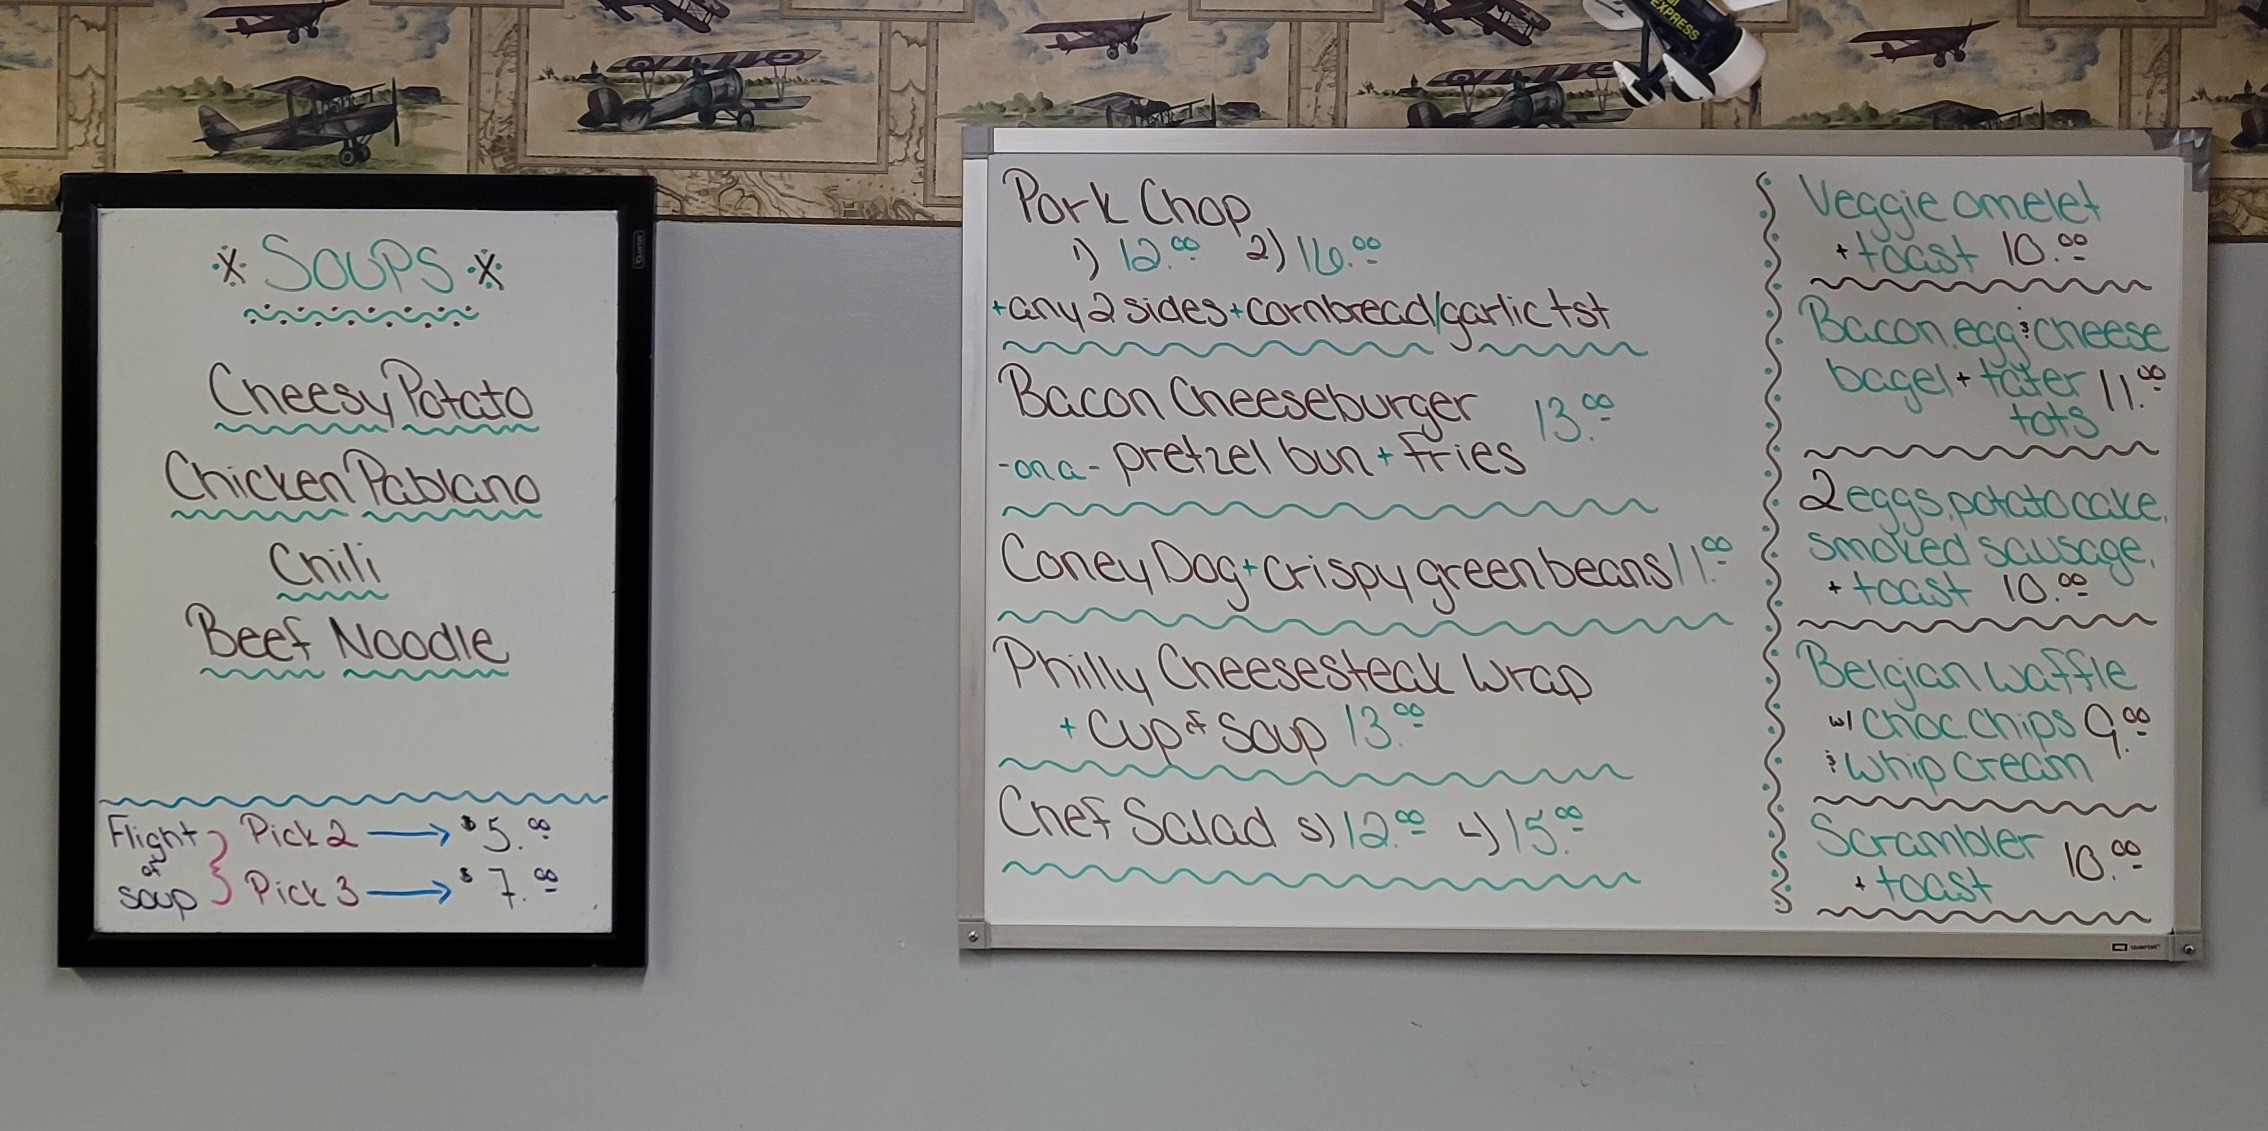 EXPRESS
SOUPS
Cheesy Potato
Chicken Pablano
Chili
Beef Noodle
Flight of soup
Pick 2 → $5.00
Pick 3 → $7.00
Pork Chop
1) 12.00 2) 16.00
+ any 2 sides + cornbread/garlic tst
Bacon Cheeseburger 13.00
-on a- pretzel bun + fries
Coney Dog + crispy green beans 11.00
Philly Cheesesteak Wrap
+ Cup of Soup 13.00
Chef Salad S) 12.00 L) 15.00
Veggie omelet
+ toast 10.00
Bacon, egg & cheese
bagel + tater 11.00
tots
2 eggs, potato cake,
smoked sausage,
+ toast 10.00
Belgian waffle
w/ choc. chips 9.00
& whip cream
Scrambler 10.00
+ toast
Quartet